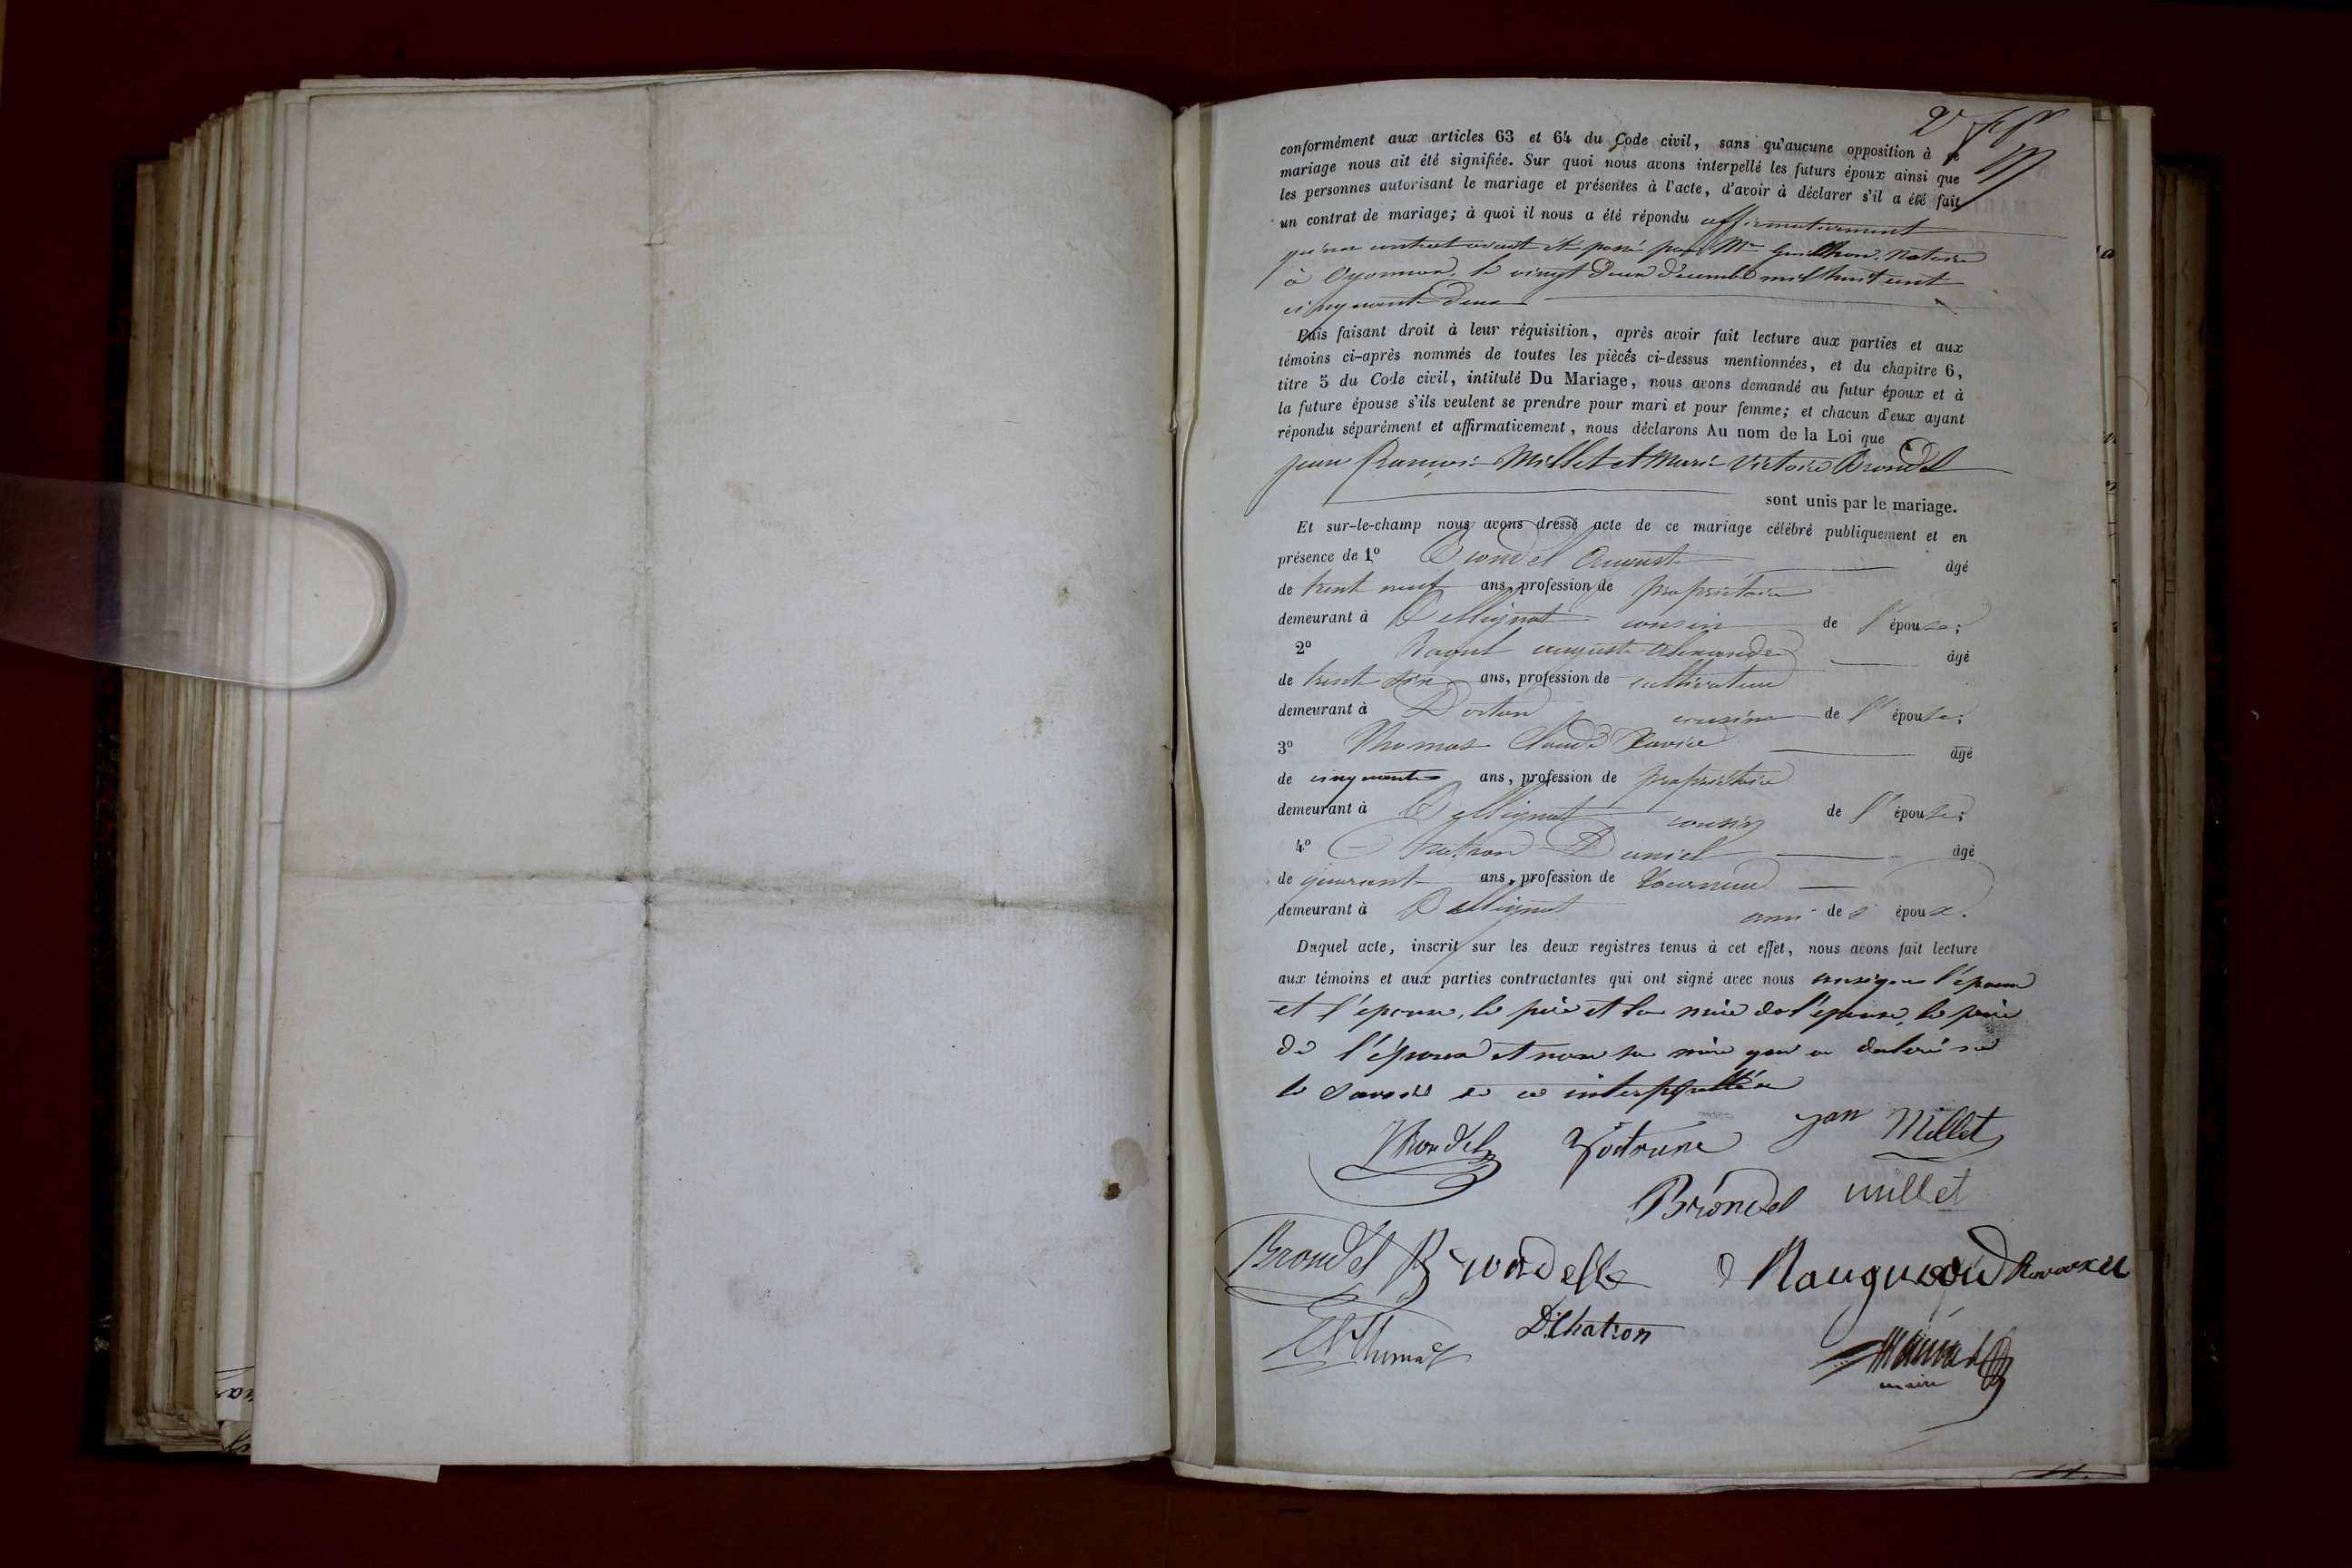 conformément aux articles 63 et 64 du Code civil, sans qu'aucune opposition à ce
mariage nous ait été signifiée. Sur quoi nous avons interpellé les futurs époux ainsi que
les personnes autorisant le mariage et présentes à l'acte, d'avoir à déclarer s'il a été fait
un contrat de mariage; à quoi il nous a été répondu affirmativement
qu'un contrat avait été passé par Me Guillon, Notaire
à Oyonnax, le vingt deux décembre mil huit cent
cinquante deux
Puis faisant droit à leur réquisition, après avoir fait lecture aux parties et aux
témoins ci-après nommés de toutes les pièces ci-dessus mentionnées, et du chapitre 6,
titre 5 du Code civil, intitulé Du Mariage, nous avons demandé au futur époux et à
la future épouse s'ils veulent se prendre pour mari et pour femme; et chacun d'eux ayant
répondu séparément et affirmativement, nous déclarons Au nom de la Loi que
Jean François Millet et Marie Victoire Brondel
sont unis par le mariage.
Et sur-le-champ nous avons dressé acte de ce mariage célébré publiquement et en
présence de 1º Brondel Auguste âgé
de trente neuf ans, profession de propriétaire
demeurant à Bellignat cousin de l'épouse;
2º auguste alexandre âgé
de trente six ans, profession de cultivateur
demeurant à Dortan cousin de l'épouse;
3º Thomas Claude Xavier âgé
de cinquante ans, profession de propriétaire
demeurant à Bellignat cousin de l'épouse;
4º Chatron Daniel âgé
de quarante ans, profession de tourneur
demeurant à Bellignat ami de l'époux.
Duquel acte, inscrit sur les deux registres tenus à cet effet, nous avons fait lecture
aux témoins et aux parties contractantes qui ont signé avec nous ainsi que l'époux
et l'épouse, le père et la mère de l'épouse, le père
de l'époux et non sa mère qui a déclaré ne
le savoir de ce interpellée
Brondel jan Millet
Brondel millet
Brondel Brondelle
Thomas D. Chatron
maire